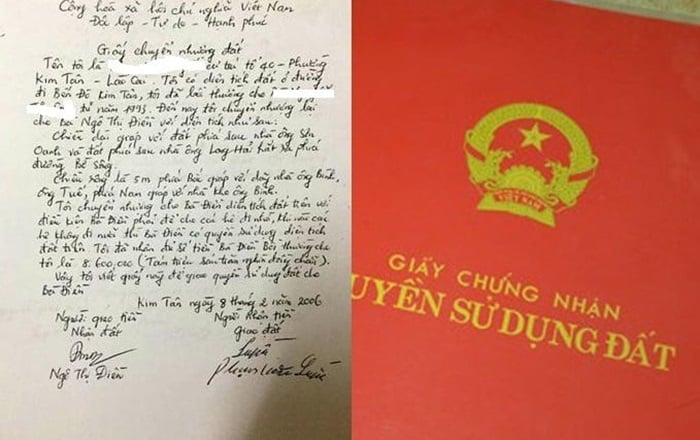 Cộng hòa xã hội chủ nghĩa Việt Nam
Độc lập - Tự do - Hạnh phúc
Giấy chuyển nhường đất
Tên tôi là cư tại tổ 40 - Phường
Kim Tân - Lào Cai. Tôi có diện tích đất ở đường
đi Bến Đá Kim Tân, tôi đã bồi thường cho
từ năm 1993. Đến nay tôi chuyển nhường lại
cho Bà Ngô Thị Điền với diện tích như sau:
Chiều dài giáp với đất phía sau nhà ông Sơn
Oanh và đất phía sau nhà ông Long Hải hất ra phía
đường Bờ Sông.
Chiều rộng là 5m phía Bắc giáp với dãy nhà ông Bình,
ông Tuê, phía Nam giáp với nhà kho ông Bình.
Tôi chuyển nhường cho Bà Điền diện tích đất trên với
điều kiện Bà Điền phải để cho các hộ đi nhờ, khi nào các
hộ không đi nữa thì Bà Điền có quyền sử dụng diện tích
đất trên. Tôi đã nhận đủ số tiền Bà Điền Bồi thường cho
tôi là 8.600.000 (Tám triệu sáu trăm nghìn đồng chẵn).
Vậy tôi viết giấy này để giao quyền sử dụng đất cho
Bà Điền
Kim Tân ngày 8 tháng 2 năm 2006
Người giao tiền Người Nhận tiền
Nhận đất Giao đất
Ngô Thị Điền
VIỆT NAM
GIẤY CHỨNG NHẬN
UYỀN SỬ DỤNG ĐẤT